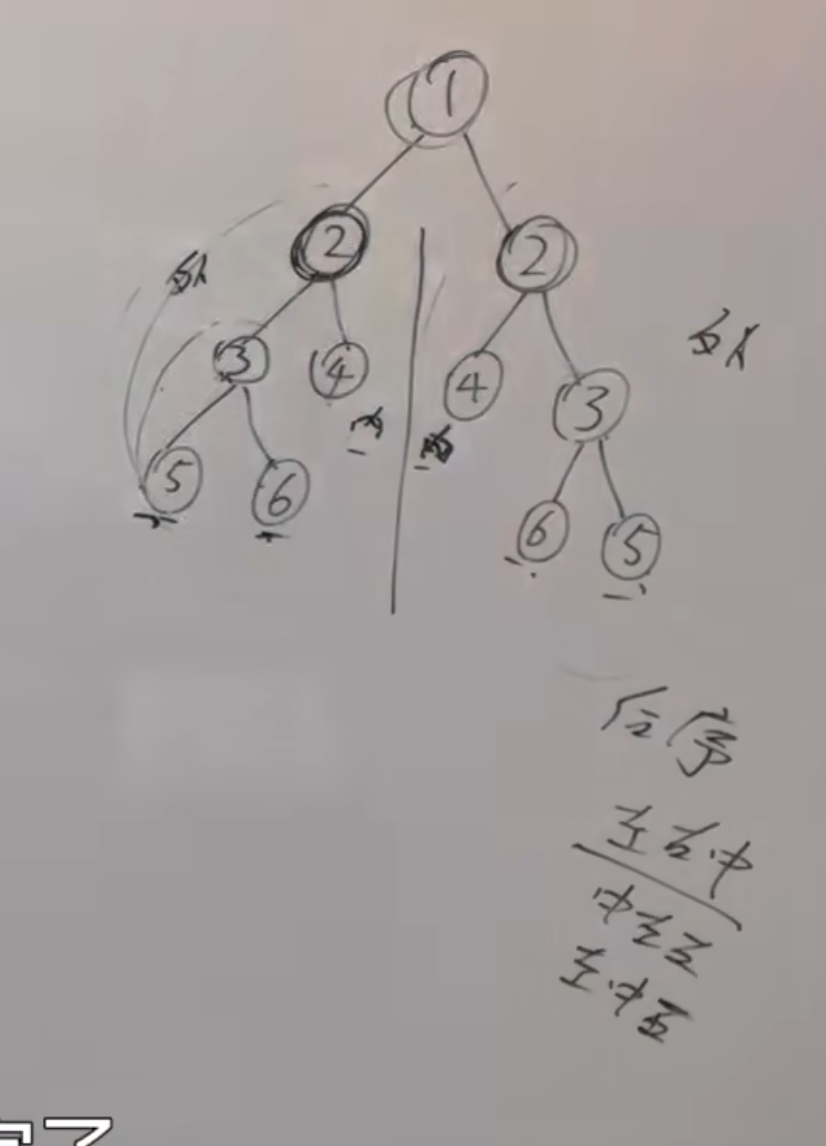 1
2 2
3 4 4 3
5 6 6 5
外
外
内
内
后序
左右中
中左右
左中右